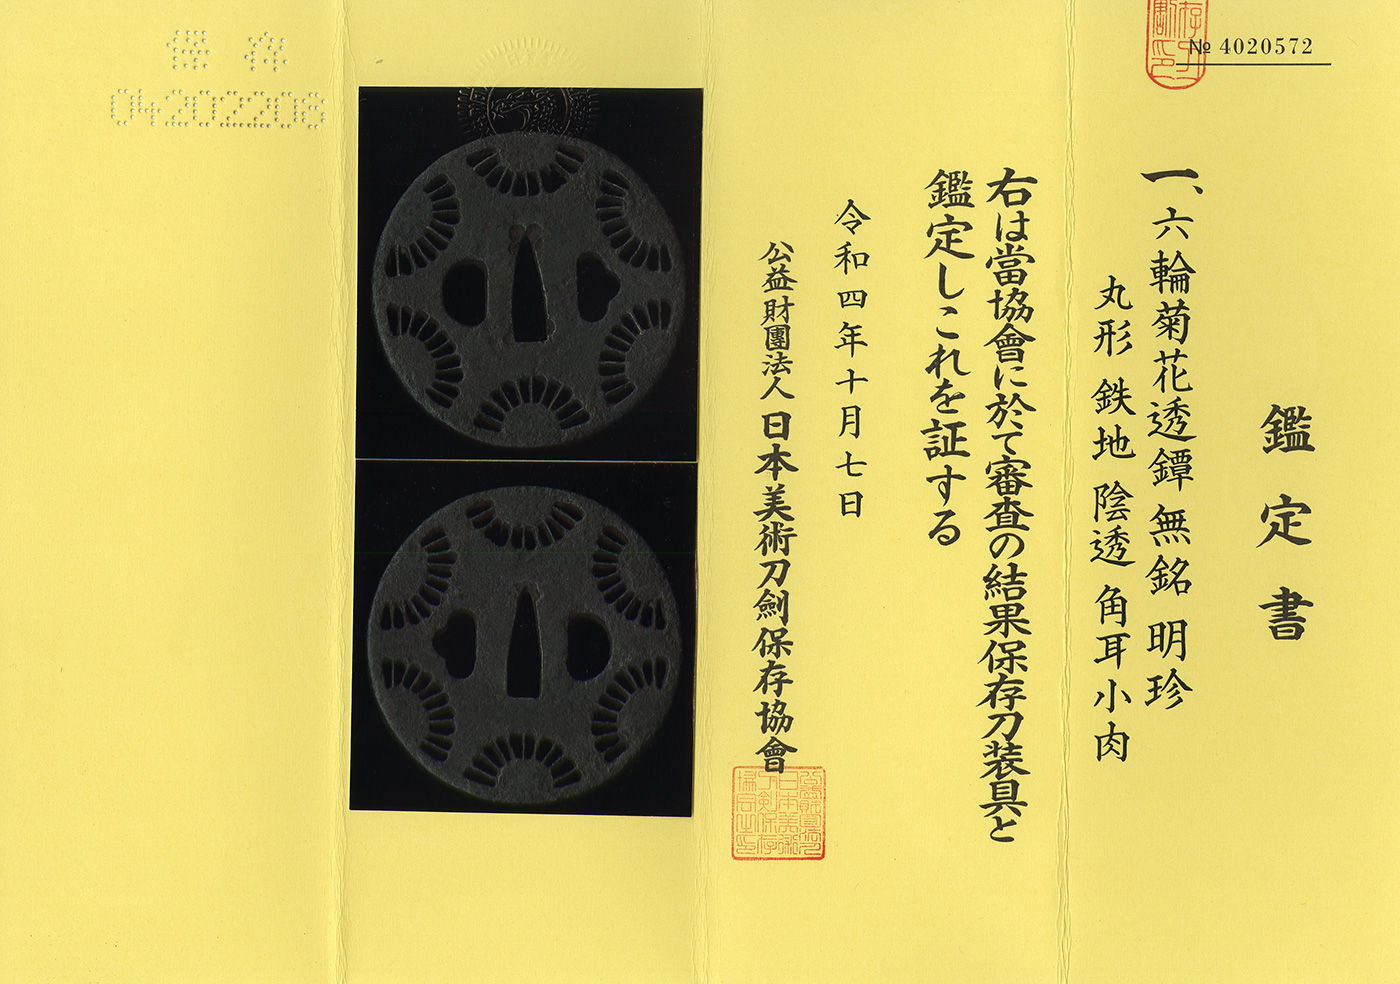 № 4020572
鑑定書
一、六輪菊花透鐔 無銘 明珍
丸形 鉄地 陰透 角耳小肉
右は當協會に於て審査の結果保存刀装具と
鑑定しこれを証する
令和四年十月七日
公益財團法人 日本美術刀劍保存協會
保存
04202208